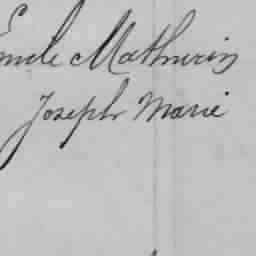 Emile Mathurin
Joseph Marie